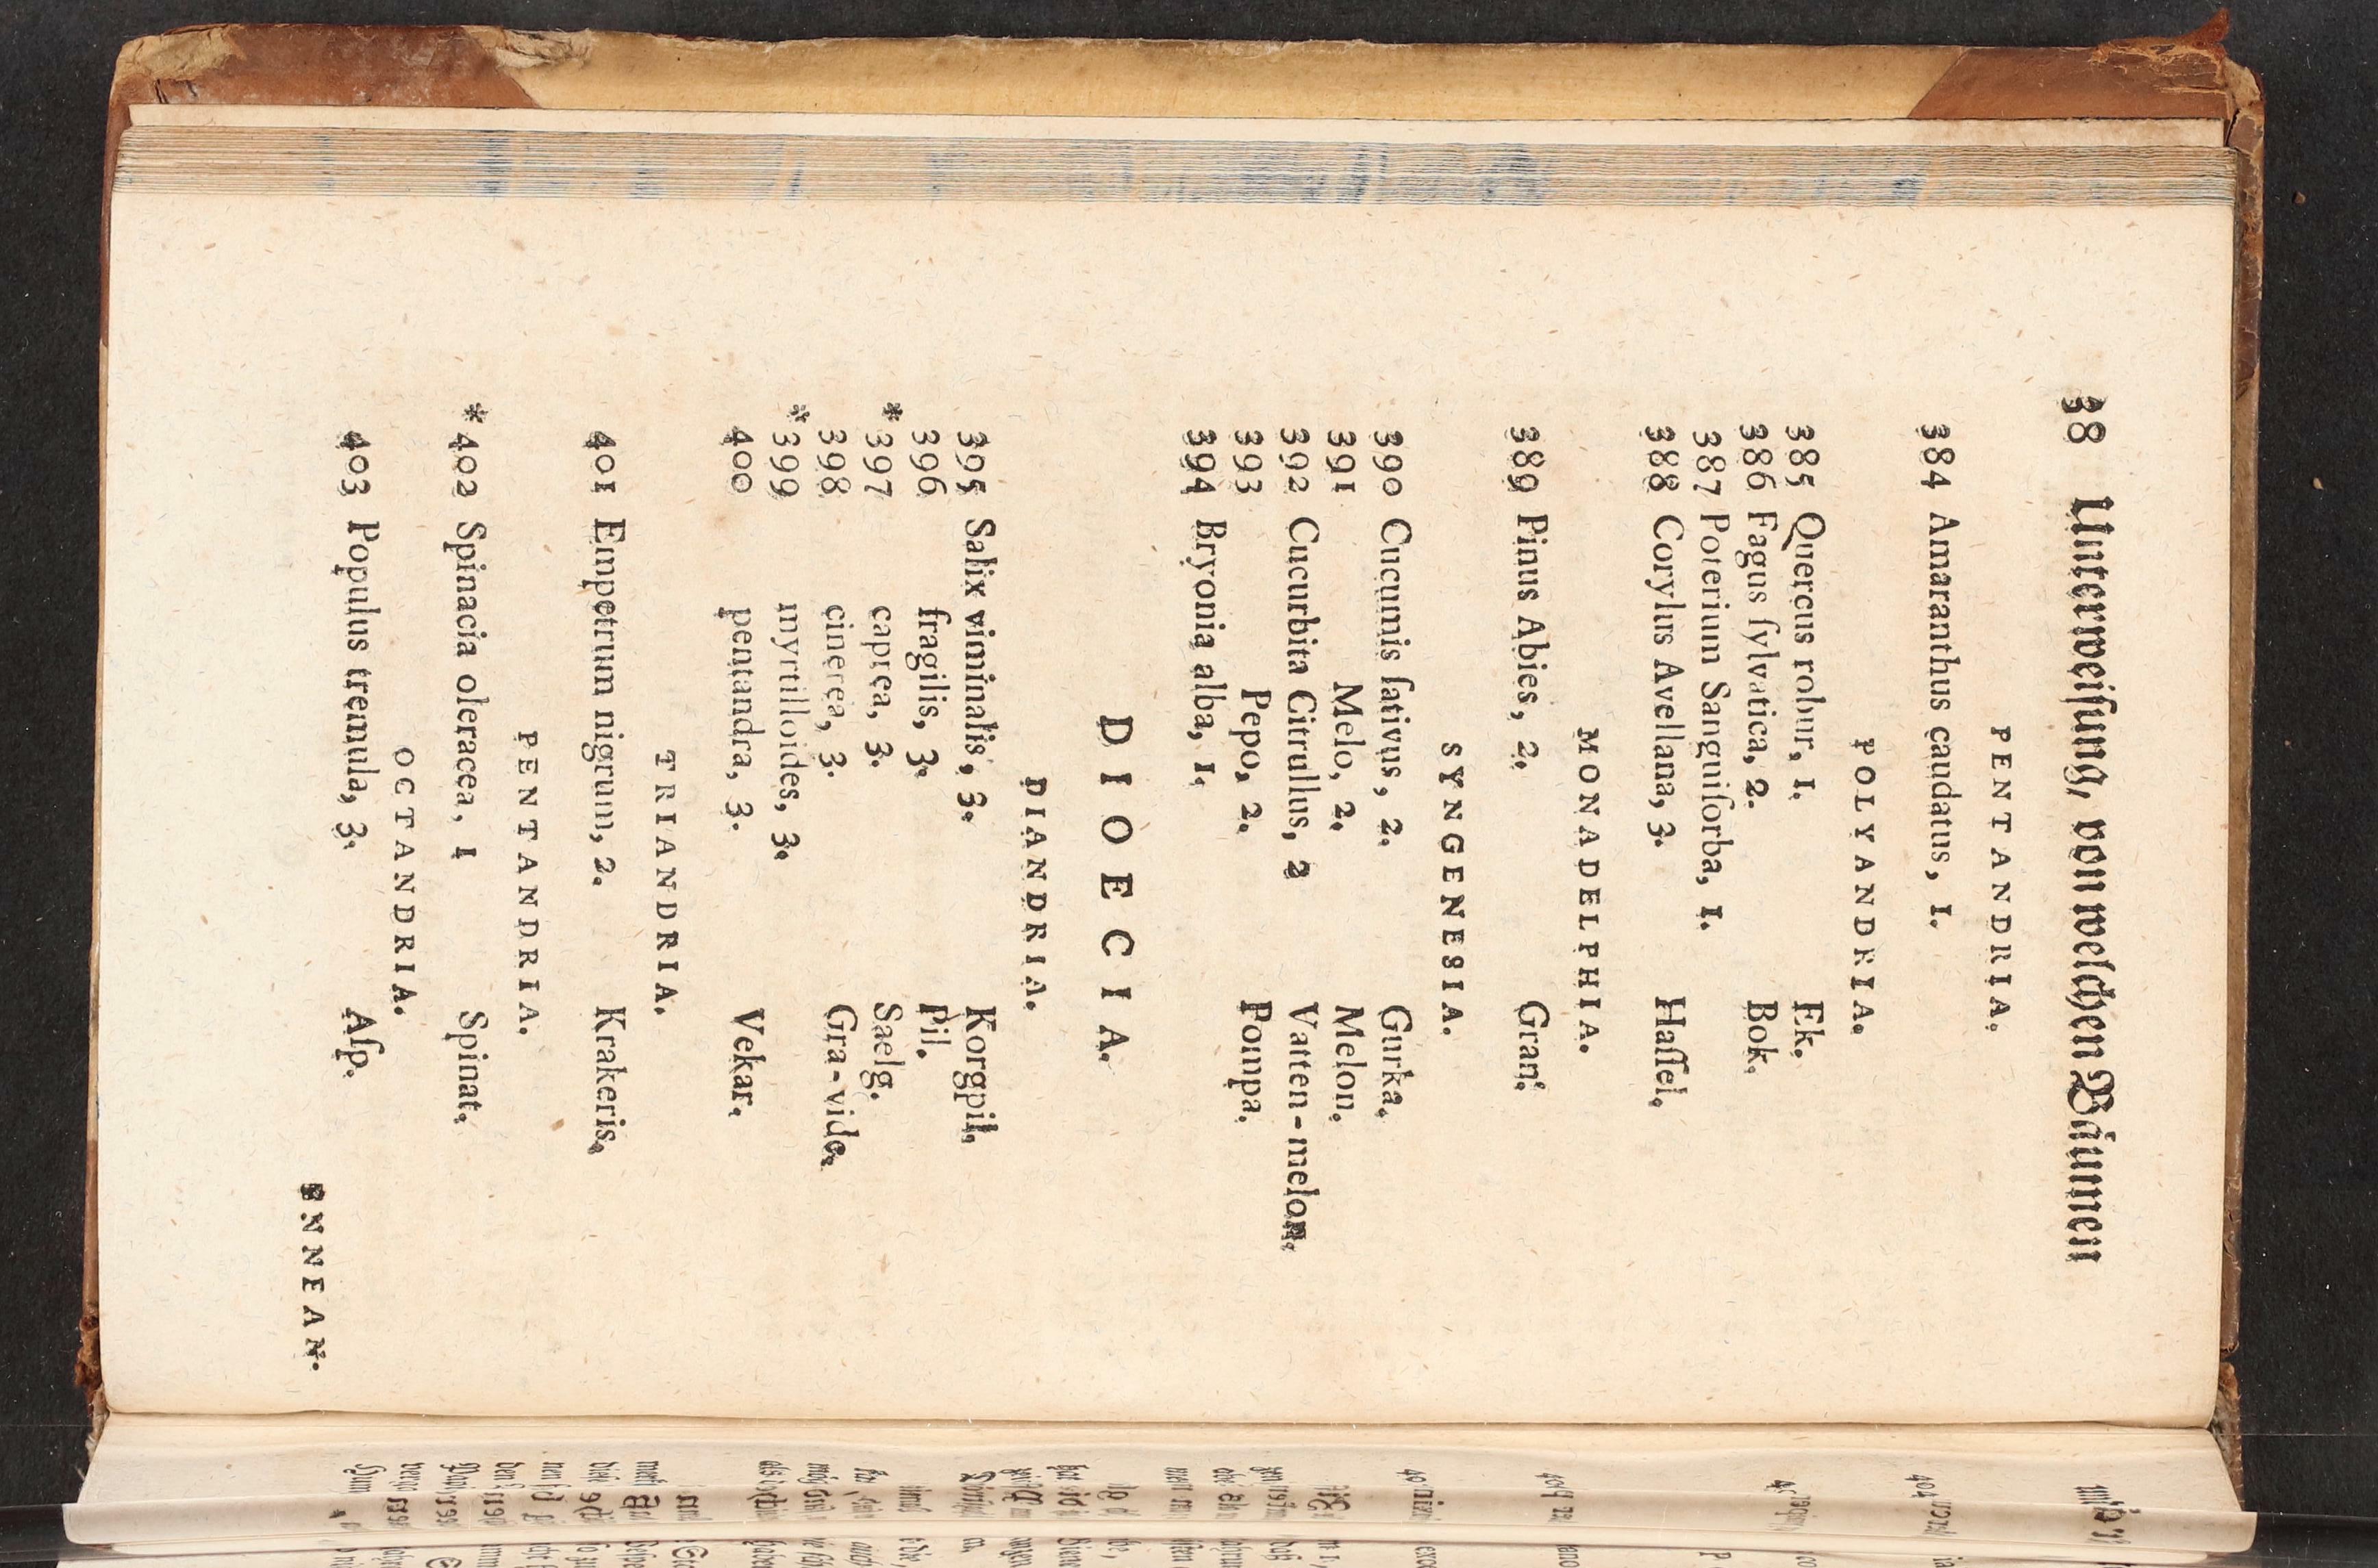 38 Unterweisung, von welchen Bäumen
PENTANDRIA.
384 Amaranthus caudatus, 1.
POLYANDRIA.
385 Quercus robur, 1. Ek.
386 Fagus ſylvatica, 2. Bok.
387 Poterium Sanguiſorba, 1.
388 Corylus Avellana, 3. Haſſel.
MONADELPHIA.
389 Pinus Abies, 2. Gran.
SYNGENESIA.
390 Cucumis ſativus, 2. Gurka.
391 Melo, 2. Melon.
392 Cucurbita Citrullus, 2 Vatten-melon.
393 Pepo, 2. Pompa.
394 Bryonia alba, 1.
DIOECIA.
DIANDRIA.
395 Salix viminalis, 3. Korgpil.
396 fragilis, 3. Pil.
* 397 caprea, 3. Saelg.
398 cinerea, 3. Gra-vide.
* 399 myrtilloides, 3.
400 pentandra, 3. Vekar.
TRIANDRIA.
401 Empetrum nigrum, 2. Krakeris.
PENTANDRIA.
* 402 Spinacia oleracea, 1 Spinat.
OCTANDRIA.
403 Populus tremula, 3. Aſp.
ENNEAN.